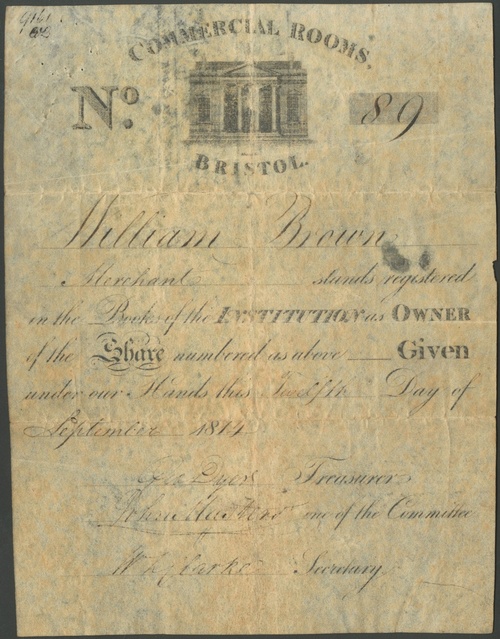 COMMERCIAL ROOMS,
No. 89
BRISTOL.
William Brown
Merchant stands registered
in the Books of the INSTITUTION as OWNER
of the Share numbered as above Given
under our Hands this Twelfth Day of
September 1814
Geo Dyer Treasurer
John one of the Committee
W L Clarke Secretary